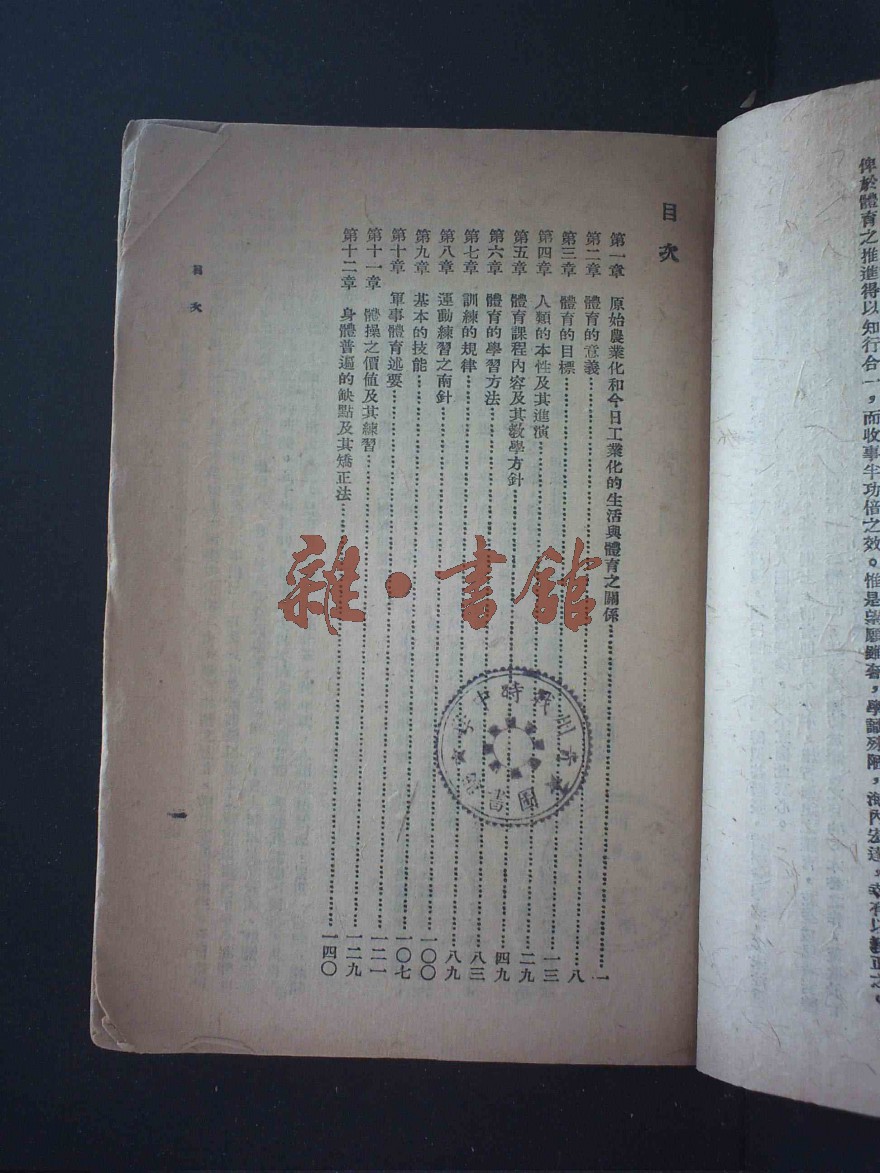 俾於體育之推進得以知行合一，而收事半功倍之效。惟是
目次
第一章 原始農業化和今日工業化的生活與體育之關係 一
第二章 體育的意義 八
第三章 體育的目標 一三
第四章 人類的本性及其進演 二九
第五章 體育課程內容及其教學方針 四九
第六章 體育的學習方法 八三
第七章 訓練的規律 八九
第八章 運動練習之南針 一〇〇
第九章 基本的技能 一〇七
第十章 軍事體育述要 一二一
第十一章 體操之價值及其練習 一二九
第十二章 身體普遍的缺點及其矯正法 一四〇
目次
一
雜·書館